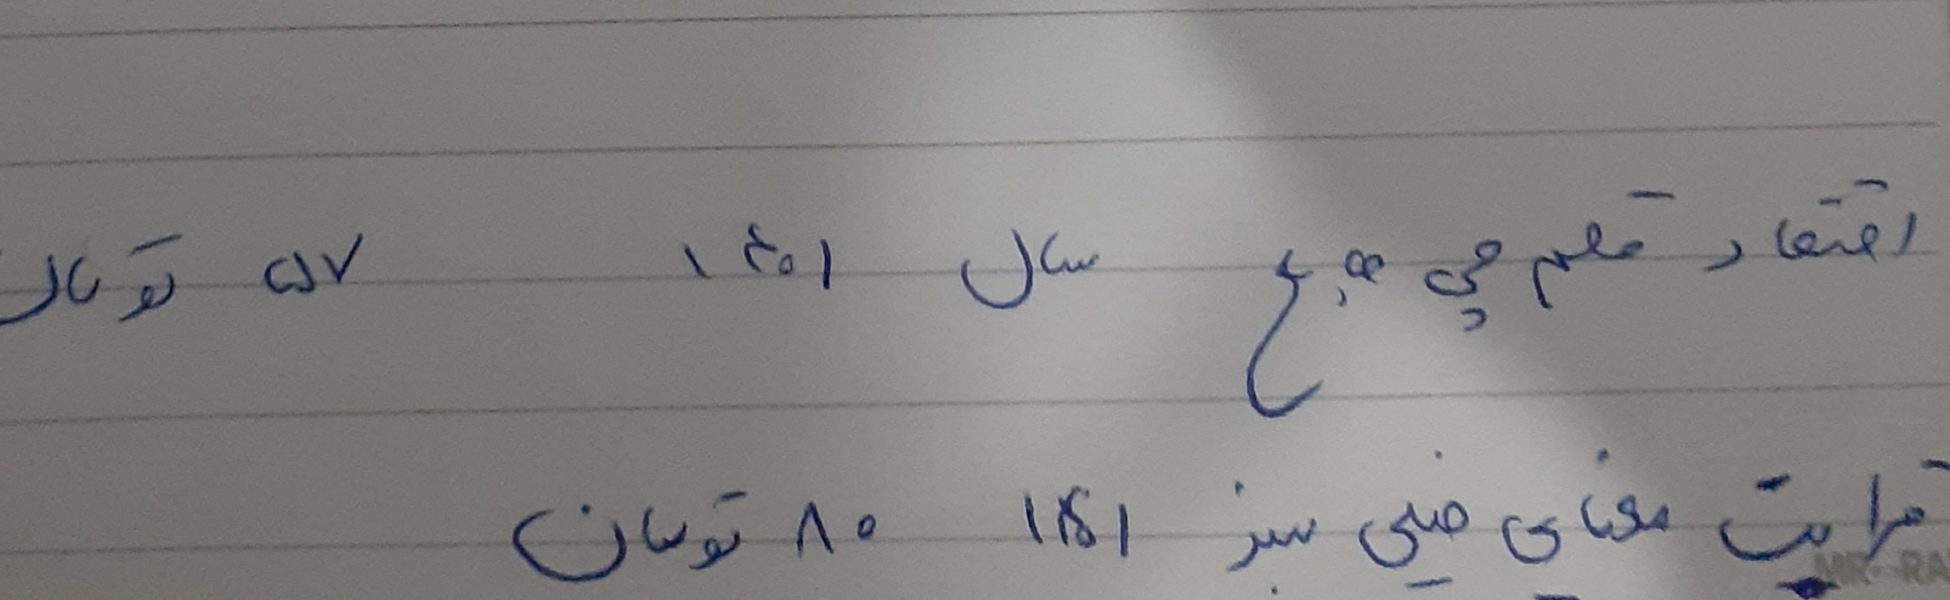 اقتصاد قلم چی جامع سال ۱۴۰۱ ۵۷ تومان
قرابت معنایی خیلی سبز ۱۴۰۱ ۸۰ تومان